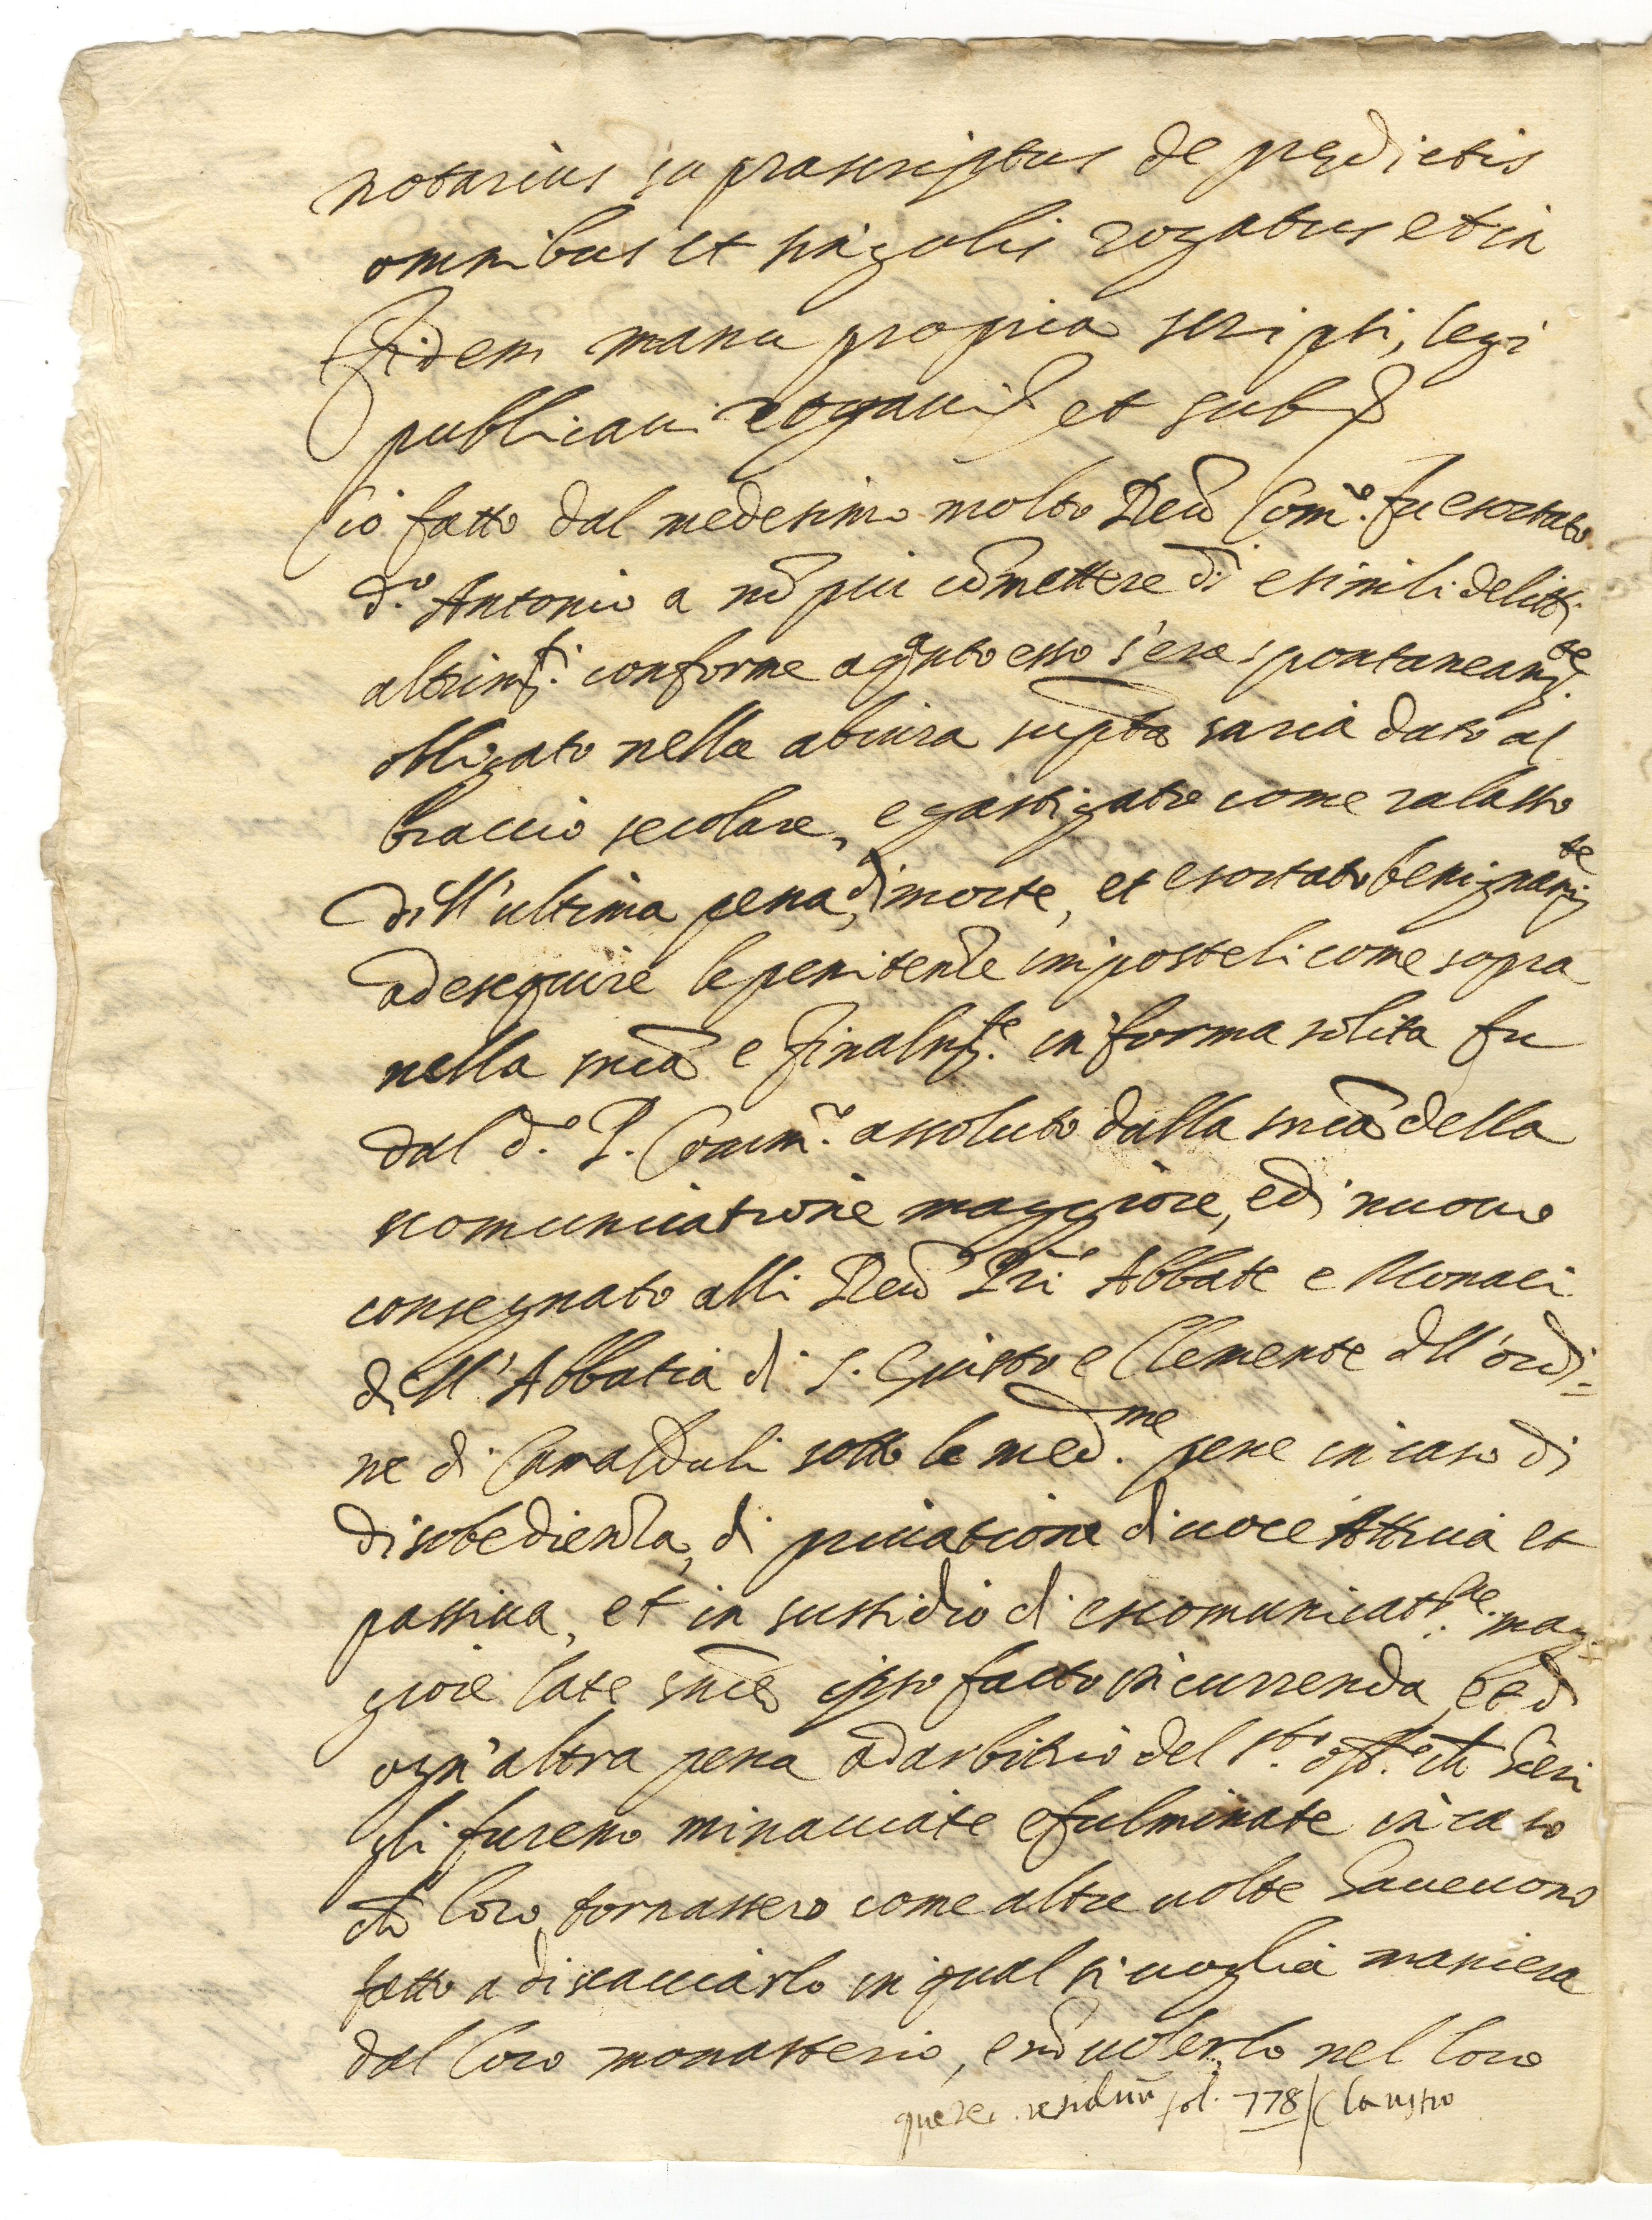 notarius suprascriptus de predictis
omnibus et singolis rogatus et in
fidem manu propria scripsi, legi
publicavi rogavi et sub
Ciò fatto dal medesimo molto Reu Com.º fu esortato
d.º Antonio a nõ più cõmettere di e simili delitti
altrim.ti conforme a q̃nto esso s'era spontaneam.te
obligato nella abiura sup̃ta saria dato al
braccio secolare, e gastigato come relasso
dell'ultima pena, di morte, et esortato benignam.te
ad eseguire le penitenze imposteli come sopra
nella sñia e finalm.te in forma solita fu
dal d.º P. Comm.º assoluto dalla sñia della
scomunicatione maggiore, e di nuovo
consegnato alli Reu Pri Abbate e Monaci
dell'Abbatia di S. Giusto e Clemente dell'ordi=
ne di Camalduli sotto le med.me pene in caso di
disobedienza, di privatione di voce Attiva et
passiva, et in sussidio di escomunicat.ne mag
giore late sñie ipso facto incurrenda, et di
ogn'altra pena ad arbitrio del S.to off.º ch
gli fureno minacciate e fulminate in caso
ch loro tornassero come altre volte havevono
fatto a discacciarlo in qual si voglia maniera
dal loro monasterio, e nõ volerlo nel loro
quere residuũ fol. 778 / Claustro